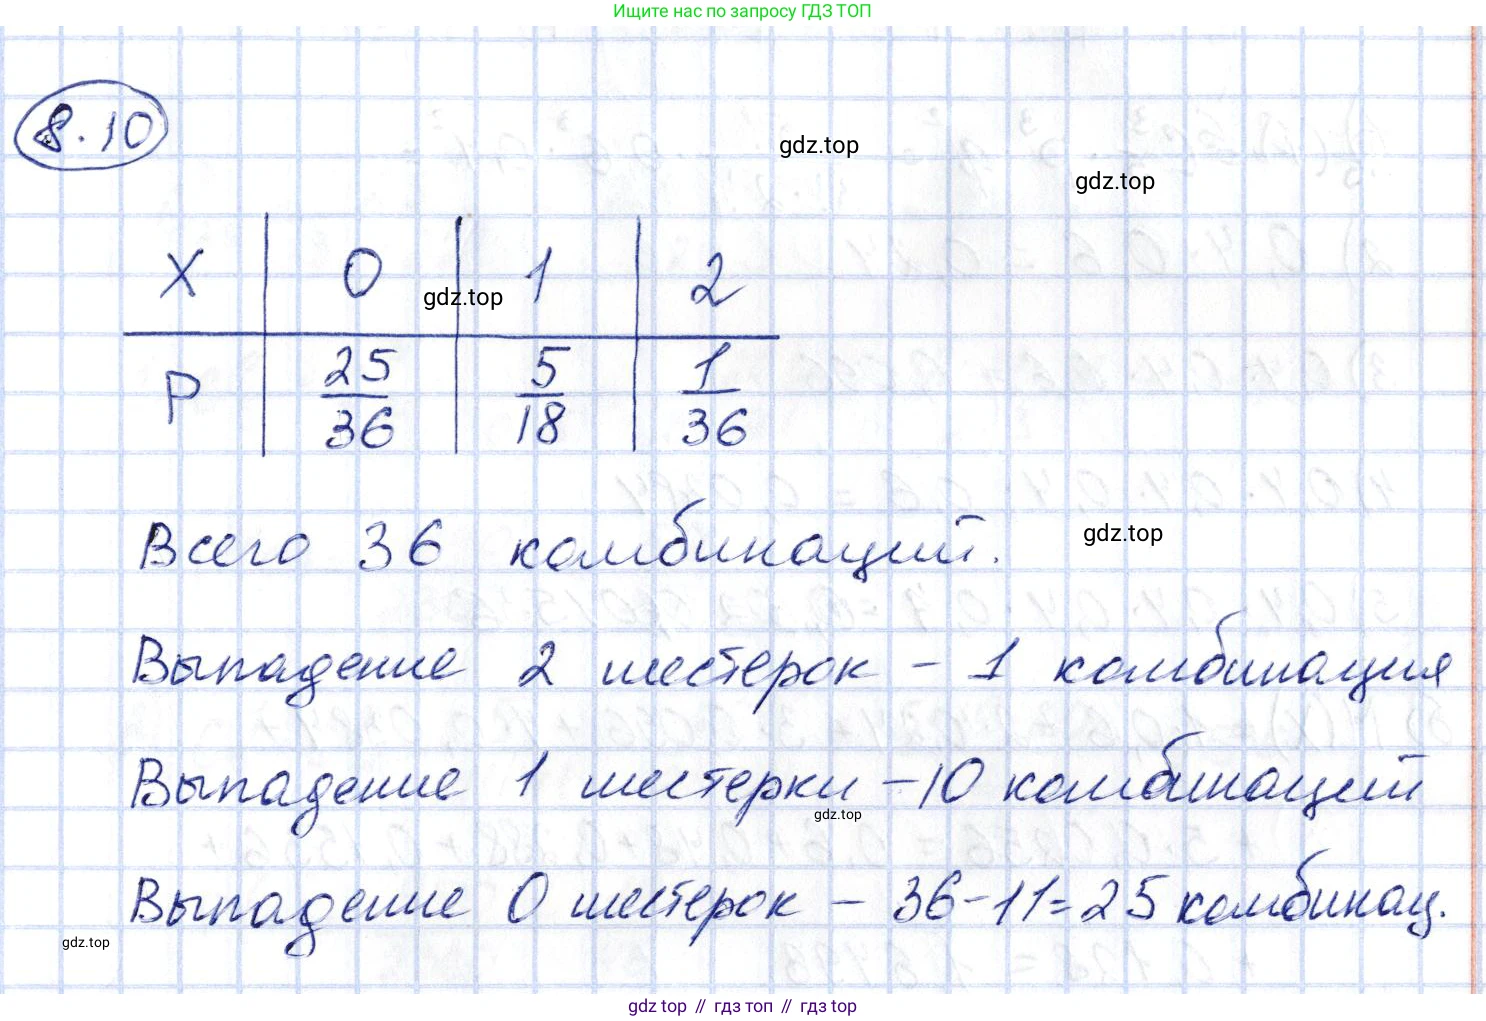 Ищите нас по запросу ГДЗ ТОП
8.10
gdz.top
gdz.top
X 0 1 2
gdz.top
P 25/36 5/18 1/36
Всего 36 комбинаций.
gdz.top
Выпадение 2 шестерок – 1 комбинация
Выпадение 1 шестерки – 10 комбинаций
gdz.top
Выпадение 0 шестерок – 36-11=25 комбинац.
gdz.top
gdz top // гдз топ // gdz top